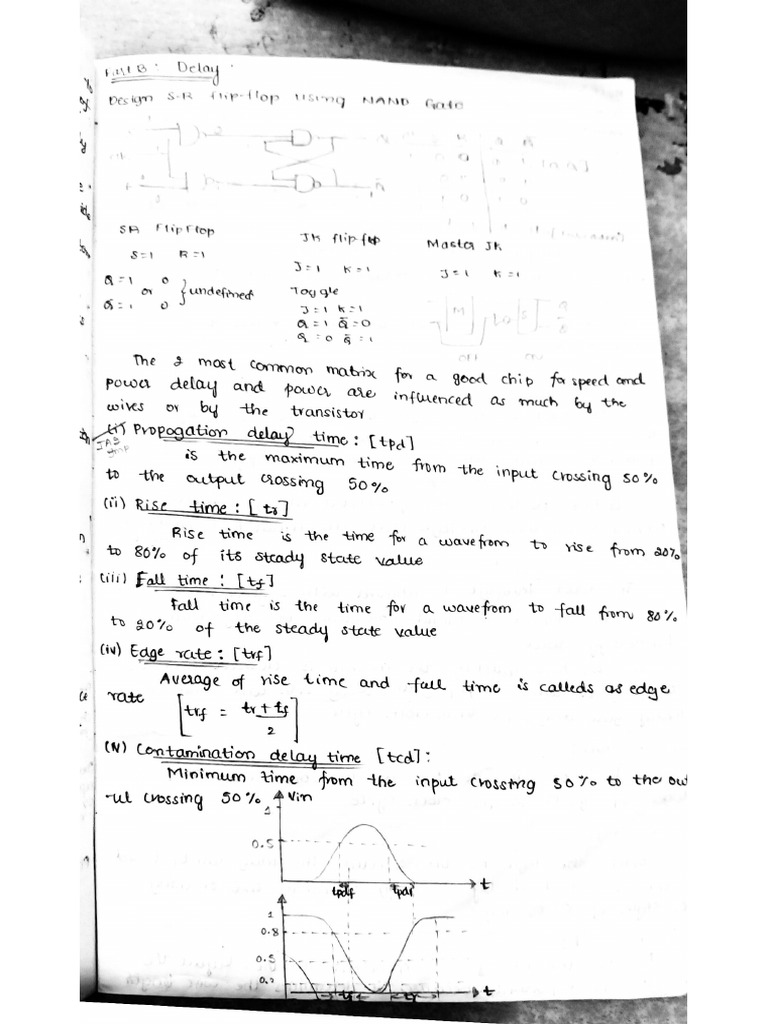 Part B : Delay :
Design S-R flip-flop using NAND Gate
SR FlipFlop
JK flip-flop
Master JK
S=1 R=1
J=1 K=1
J=1 K=1
Q=1 0
or } undefined
Q̄=1 0
Toggle
J=1 K=1
Q=1 Q̄=0
Q=0 Q̄=1
M
S
OFF ON
The 2 most common matrix for a good chip for speed and
power delay and power are influenced as much by the
wires or by the transistor
(i) Propogation delay time : [tpd]
is the maximum time from the input crossing 50%
to the output crossing 50%
(ii) Rise time : [tr]
Rise time is the time for a wavefrom to rise from 20%
to 80% of its steady state value
(iii) Fall time : [tf]
Fall time is the time for a wavefrom to fall from 80%
to 20% of the steady state value
(iv) Edge rate : [trf]
Average of rise time and fall time is calleds as edge
rate
[trf = tr + tf
2]
(V) Contamination delay time [tcd]:
Minimum time from the input crossing 50% to the out
-ut crossing 50%
Vin
1
0.5
tpdf tpdr t
1
0.8
0.5
0.2
tf tr t